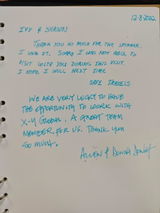 12-8-2022
THANK YOU SO MUCH FOR THE
I LOVE IT. SORRY I WAS NOT ABLE TO
VISIT WITH YOU DURING THIS VISIT.
I HOPE I WILL NEXT TIME.
SAFE TRAVELS
WE ARE VERY LUCKY TO HAVE
THE OPPORTUNITY TO WORK WITH
X-Y GLOBAL. A GREAT TEAM
MEMBER FOR US. THANK YOU
SO MUCH.